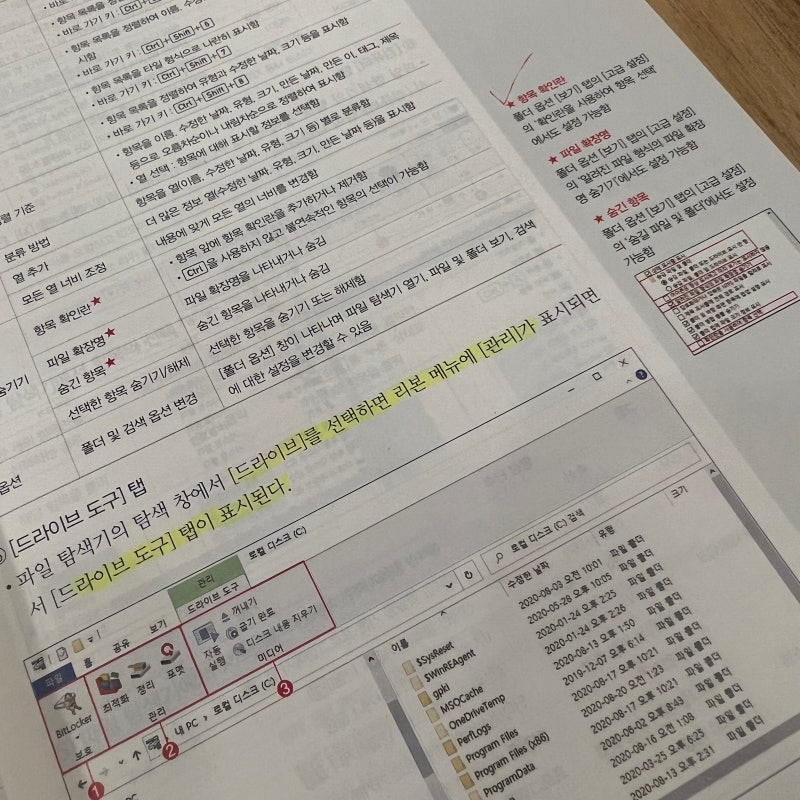 • 바로 가기 키 : Ctrl+
• 항목 목록을 정렬하여 이름, 수정
시함
• 바로 가기 키 : Ctrl+Shift+6
• 항목 목록을 타일 형식으로 나란히 표시함
• 바로 가기 키 : Ctrl+Shift+7
• 항목 목록을 정렬하여 유형과 수정한 날짜, 크기 등을 표시함
• 바로 가기 키 : Ctrl+Shift+8
• 항목을 이름, 수정한 날짜, 유형, 크기, 만든 날짜, 만든 이, 태그, 제목
등으로 오름차순이나 내림차순으로 정렬하여 표시함
• 열 선택 : 항목에 대해 표시할 정보를 선택함
렬 기준
분류 방법
항목을 열(이름, 수정한 날짜, 유형, 크기 등) 별로 분류함
열 추가
더 많은 정보 열(수정한 날짜, 유형, 크기, 만든 날짜 등)을 표시함
모든 열 너비 조정
내용에 맞게 모든 열의 너비를 변경함
항목 확인란★
• 항목 앞에 항목 확인란을 추가하거나 제거함
• Ctrl을 사용하지 않고 불연속적인 항목의 선택이 가능함
파일 확장명★
파일 확장명을 나타내거나 숨김
숨긴 항목★
숨긴 항목을 나타내거나 숨김
숨기기
선택한 항목 숨기기/해제
선택한 항목을 숨기기 또는 해제함
옵션
폴더 및 검색 옵션 변경
[폴더 옵션] 창이 나타나며 파일 탐색기 열기, 파일 및 폴더 보기, 검색
에 대한 설정을 변경할 수 있음
★ 항목 확인란
폴더 옵션 [보기] 탭의 [고급 설정]
의 '확인란을 사용하여 항목 선택'
에서도 설정 가능함
★ 파일 확장명
폴더 옵션 [보기] 탭의 [고급 설정]
의 '알려진 파일 형식의 파일 확장
명 숨기기'에서도 설정 가능함
★ 숨긴 항목
폴더 옵션 [보기] 탭의 [고급 설정]
의 '숨김 파일 및 폴더'에서도 설정
가능함
[드라이브 도구] 탭
• 파일 탐색기의 탐색 창에서 [드라이브]를 선택하면 리본 메뉴에 [관리]가 표시되면
서 [드라이브 도구] 탭이 표시된다.
관리
로컬 디스크 (C:)
파일
홈
공유
보기
드라이브 도구
BitLocker
보호
최적화
정리
포맷
관리
자동
실행
꺼내기
굽기 완료
디스크 내용 지우기
미디어
1
2
3
내 PC › 로컬 디스크 (C:)
로컬 디스크 (C:) 검색
이름
수정한 날짜
유형
크기
$SysReset
2020-08-03 오전 10:01
파일 폴더
$WinREAgent
2020-05-28 오후 10:05
파일 폴더
gpki
2020-01-24 오후 2:25
파일 폴더
MSOCache
2020-01-24 오후 2:26
파일 폴더
OneDriveTemp
2020-08-13 오후 1:50
파일 폴더
PerfLogs
2019-12-07 오후 6:14
파일 폴더
Program Files
2020-08-17 오후 10:21
파일 폴더
Program Files (x86)
2020-08-20 오전 1:23
파일 폴더
ProgramData
2020-08-17 오후 10:21
파일 폴더
2020-06-02 오후 8:43
파일 폴더
2020-08-16 오전 1:08
파일 폴더
2020-03-25 오후 6:25
파일 폴더
2020-08-13 오후 2:31
파일 폴더
PC